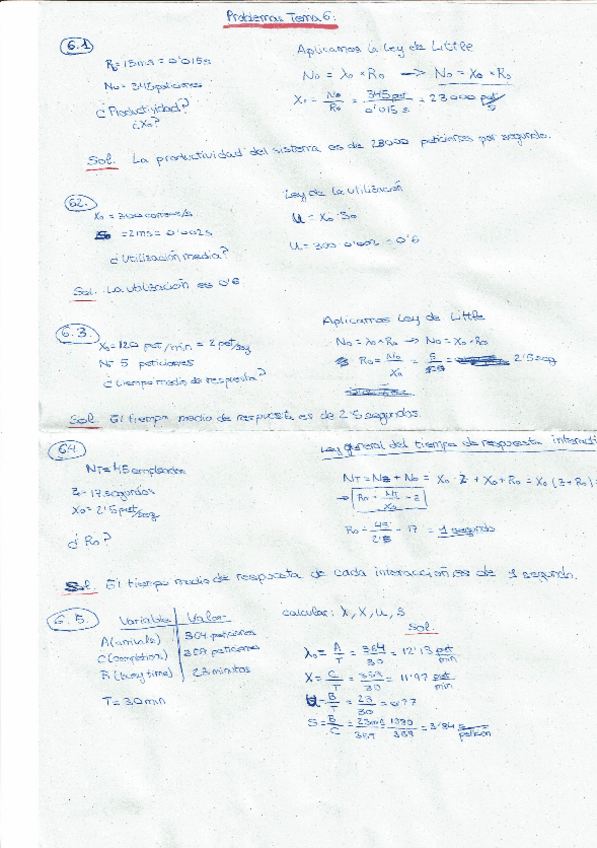 Problemas Tema 6:
6.1
R₀ = 15ms = 0'015s
N₀ = 345 peticiones
¿Productividad?
¿X₀?
Aplicamos la Ley de Little
N₀ = λ₀ * R₀ → N₀ = X₀ * R₀
X₀ = N₀/R₀ = 345 pet/0'015 s = 23000 pet/s
Sol. La productividad del sistema es de 23000 peticiones por segundo.
6.2.
X₀ = 300 correos/s
S₀ = 2ms = 0'002s
¿Utilización media?
Ley de la utilización
U = X₀ · S₀
U = 300 · 0'002 = 0'6
Sol. La utilización es 0'6
6.3.
X₀ = 120 pet/min = 2 pet/seg
N = 5 peticiones
¿tiempo medio de respuesta?
Aplicamos Ley de Little
N₀ = λ₀ * R₀ → N₀ = X₀ * R₀
R₀ = N₀/X₀ = 5 = 2'5 seg
Sol. El tiempo medio de respuesta es de 2'5 segundos.
6.4.
NT = 45 empleados
Z = 17 segundos
X₀ = 2'5 pet/seg
¿R₀?
Ley general del tiempo de respuesta
NT = Nz + N₀ = X₀ · Z + X₀ + R₀ = X₀ (Z + R₀) =
→ R₀ = NT/X₀ - Z
R₀ = 45/2'5 - 17 = 1 segundo
Sol. El tiempo medio de respuesta de cada interacción es de 1 segundo.
6.5.
Variables Valor
A (arrivals) 364 peticiones
C (completion) 359 peticiones
B (busy time) 23 minutos
T = 30 min
calcular: λ, X, U, S
Sol.
λ₀ = A/T = 364/30 = 12'13 pet/min
X = C/T = 359/30 = 11'97 pet/min
U = B/T = 23/30 = 0'77
S = B/C = 1380/359 = 3'84 s/petición